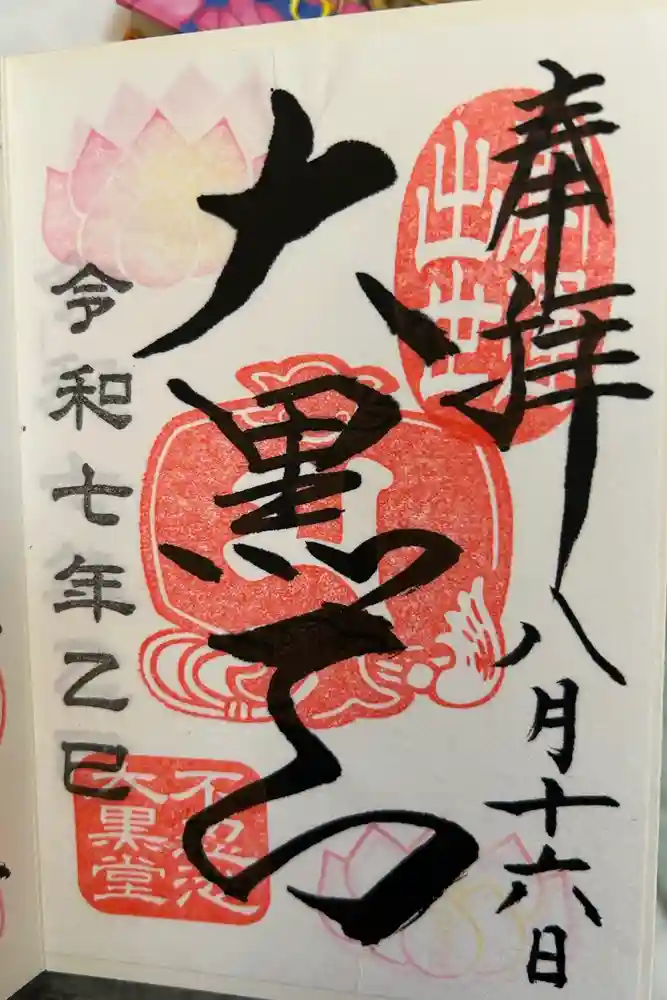 奉拝
八月十六日
出世
大黒天
令和七年乙巳
大黒堂